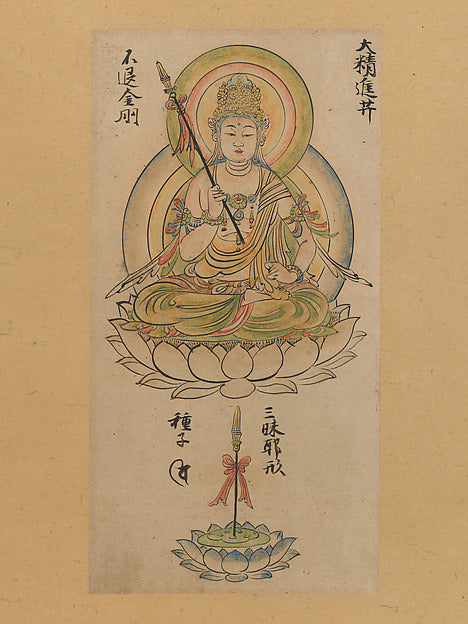 大精進𦬇
不退金剛
三昧耶形
種子